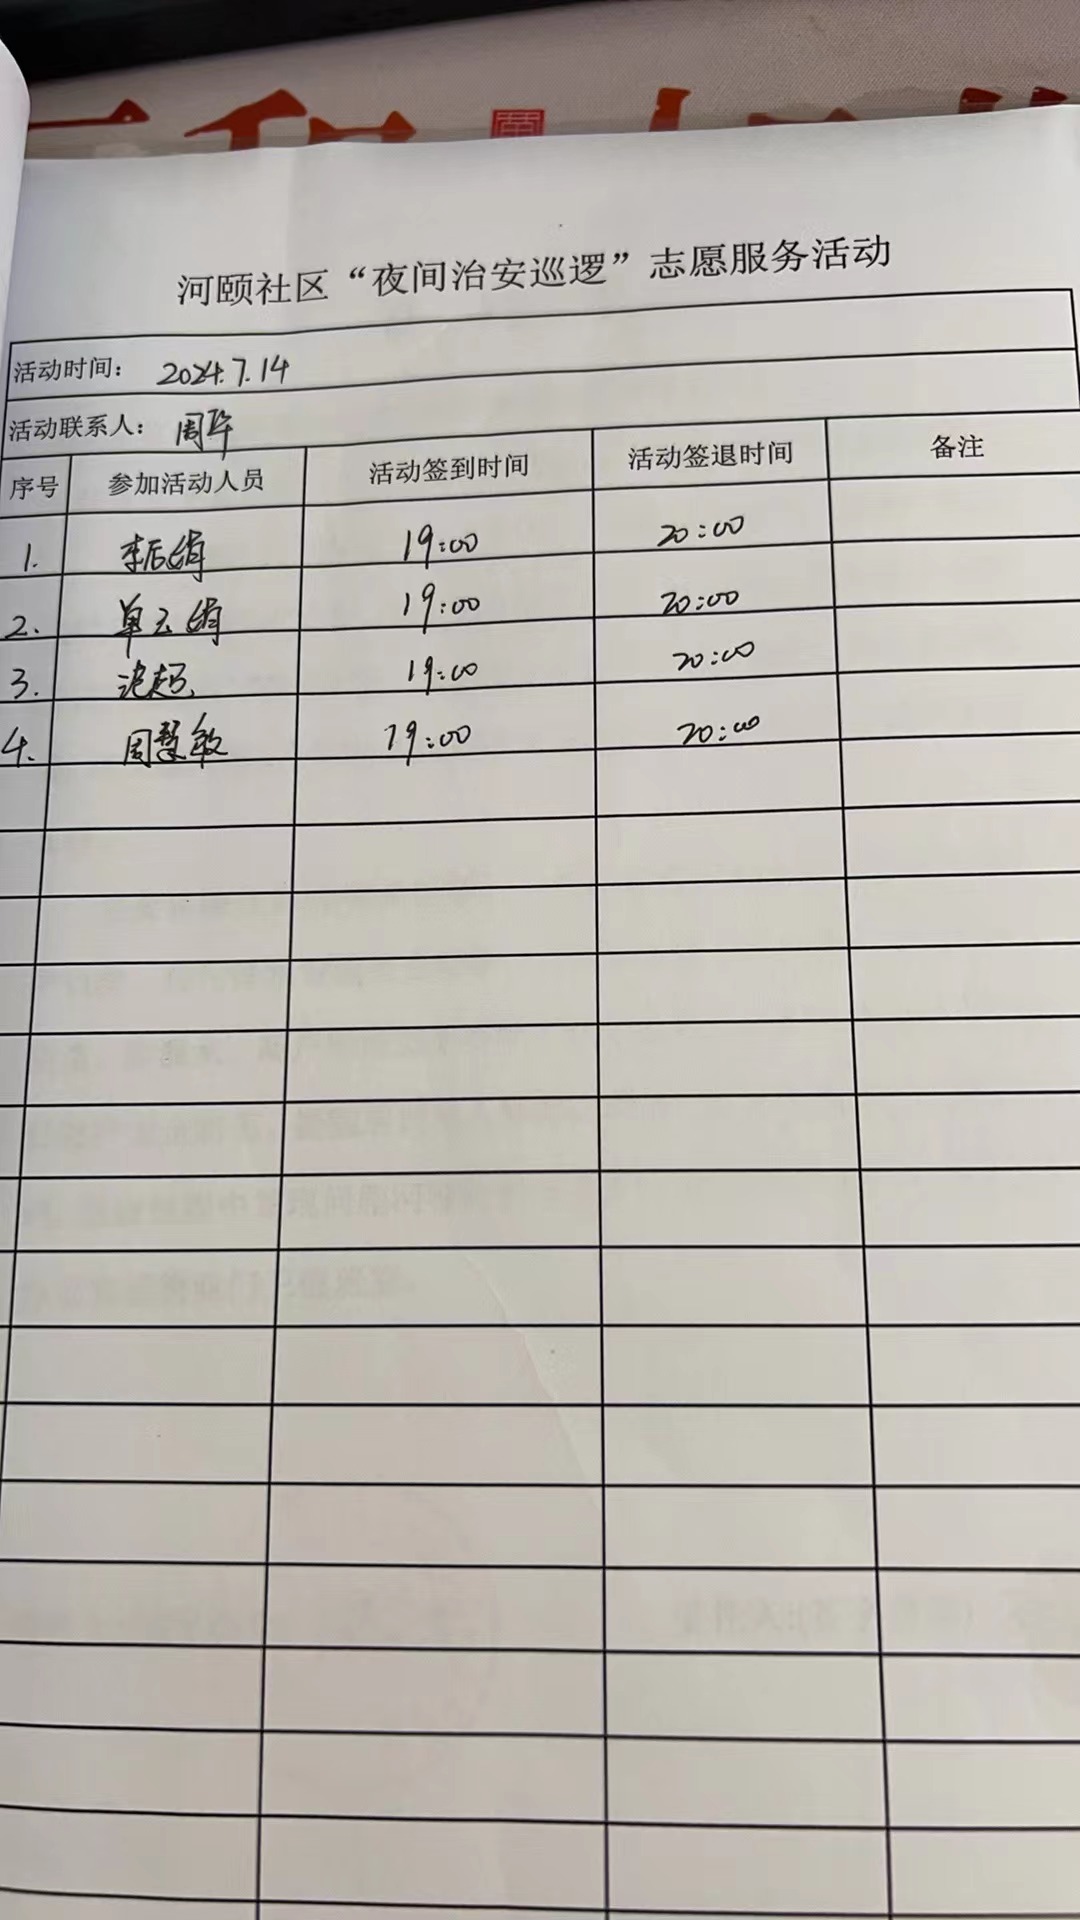 河颐社区“夜间治安巡逻”志愿服务活动
活动时间： 2024.7.14
活动联系人： 周华
序号 参加活动人员 活动签到时间 活动签退时间 备注
1. 李后娟 19:00 20:00
2. 单玉娟 19:00 20:00
3. 沈超 19:00 20:00
4. 周慧敏 19:00 20:00